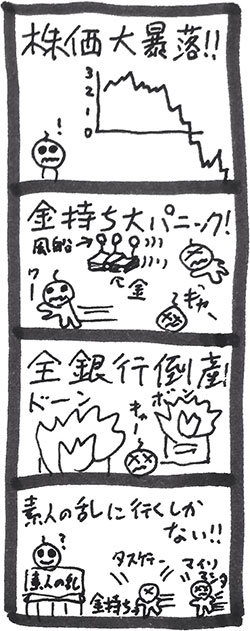 株価大暴落!!
3
2
1
0
!
金持ち大パニック!
風船→
金
ワー
ギャー
全銀行倒産!
ドーン
ボーン
キャー
素人の乱に行くしか
ない!!
?
タスケテー
素人の乱
金持ち